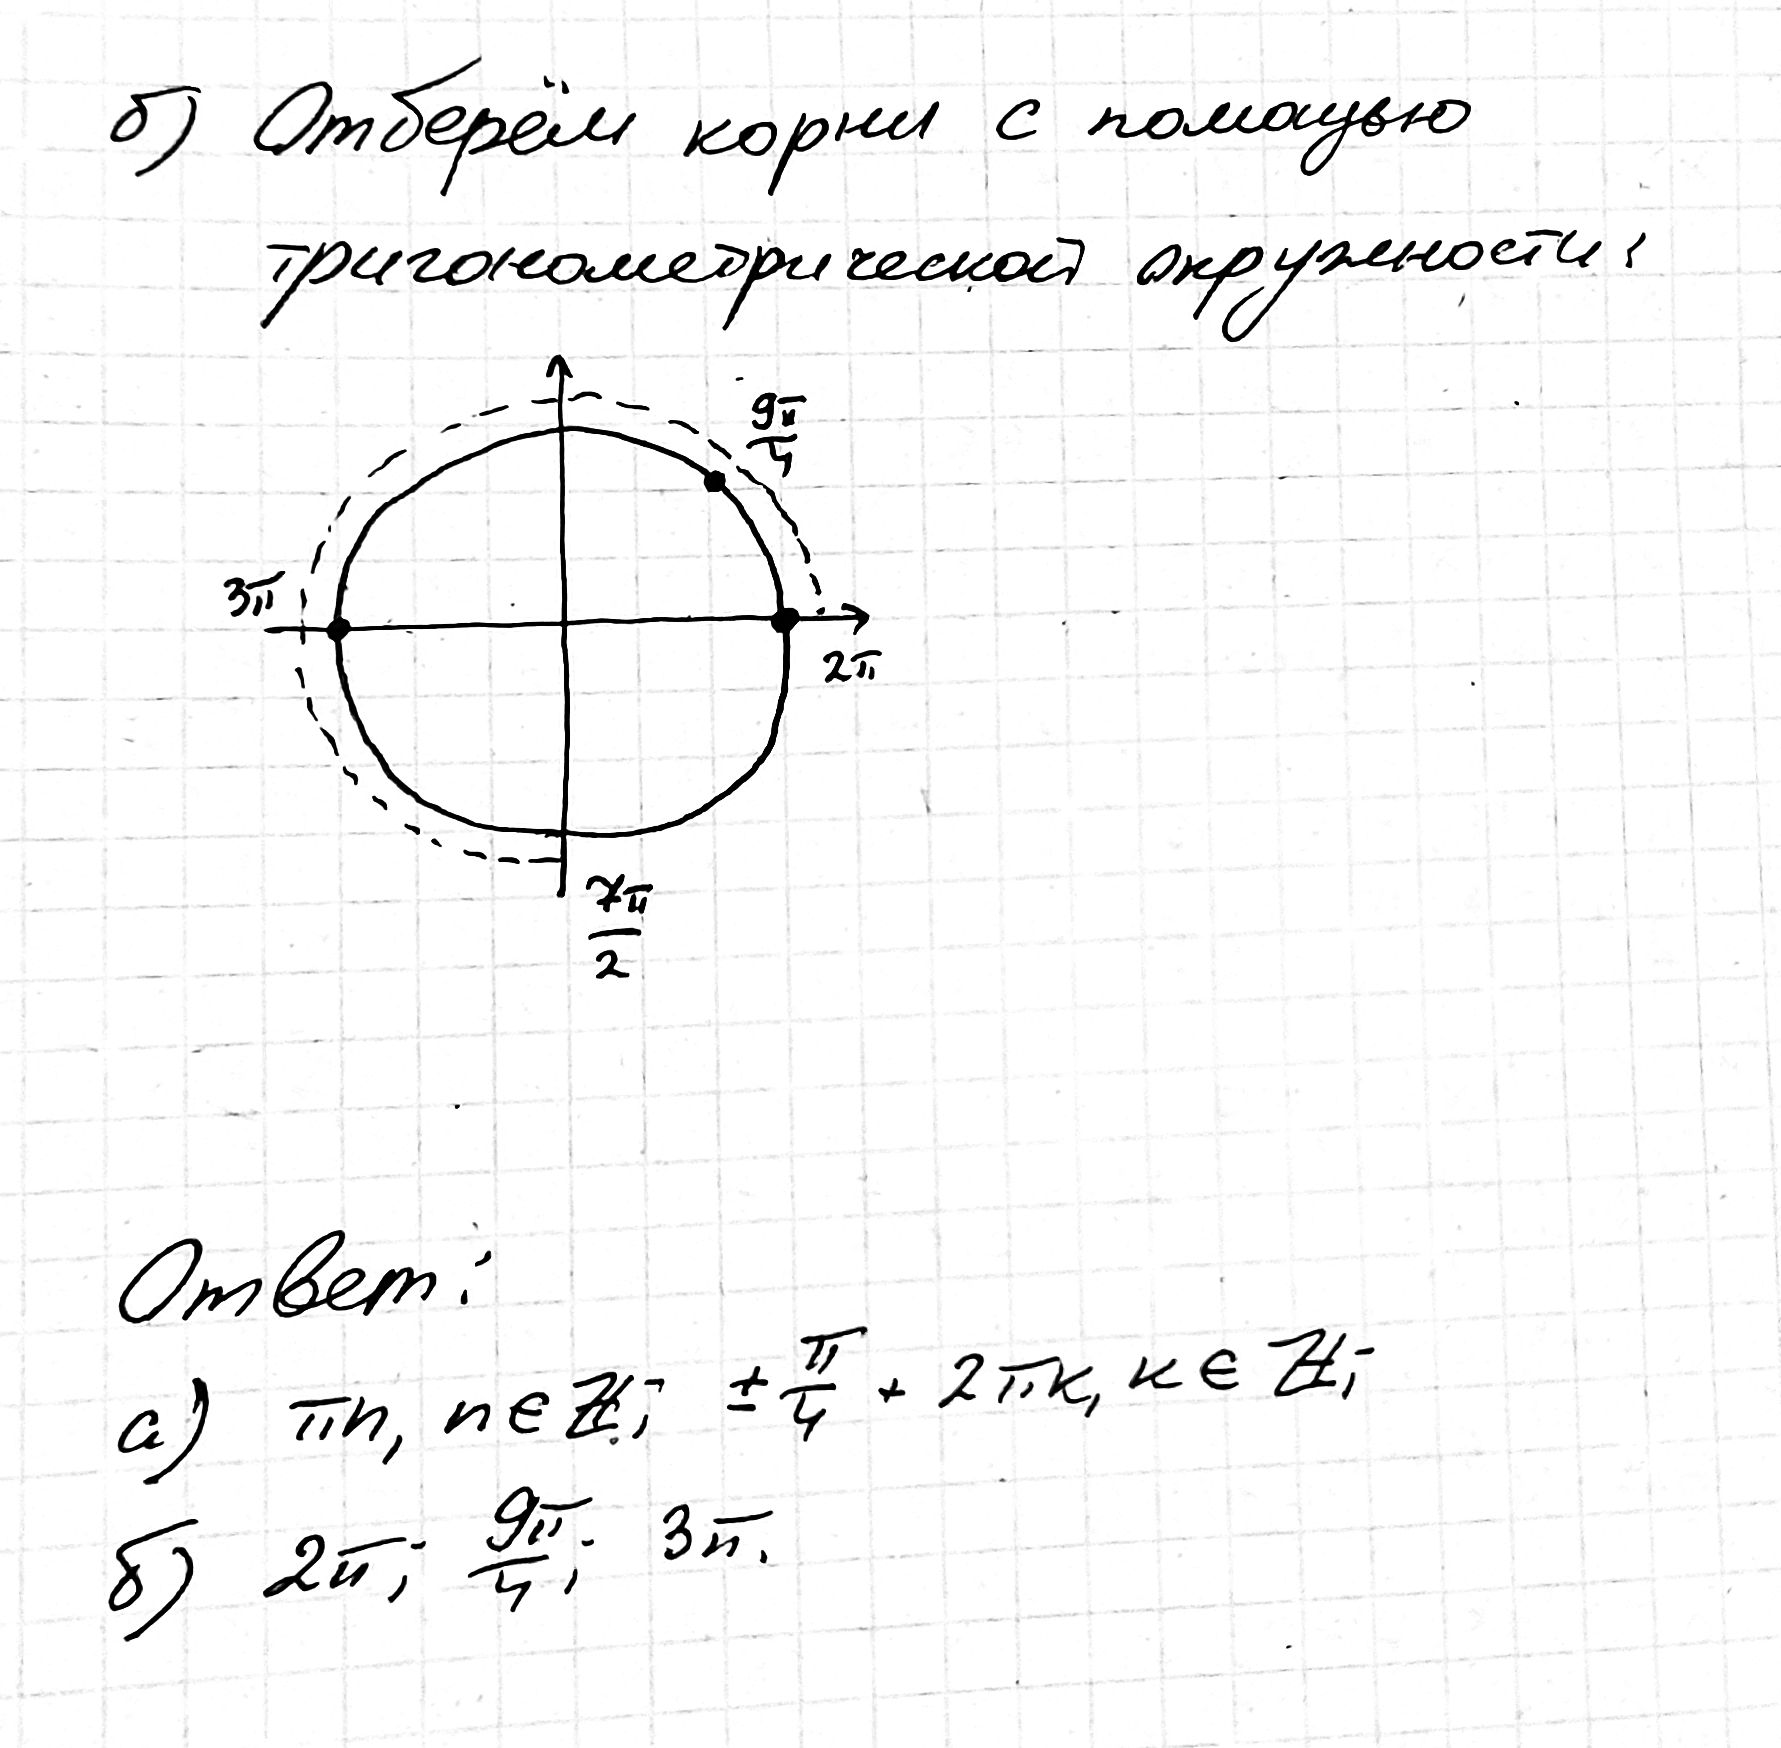 б) Отберём корни с помощью
тригонометрической окружности:
9π/4
3π
2π
7π/2
Ответ:
а) πn, n ∈ ℤ; ± π/4 + 2πk, k ∈ ℤ;
б) 2π; 9π/4; 3π.